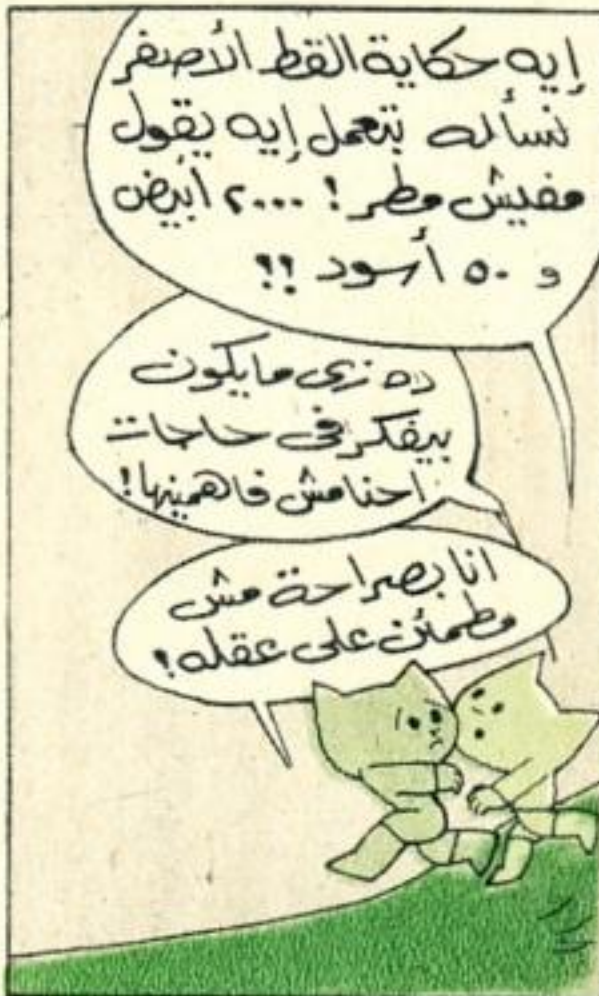 إيه حكاية القط الأصفر
نسأله بتعمل إيه يقول
مفيش مطر! ٢٠٠٠ أبيض
و ٥٠ أسود !!
ده زى مايكون
بيفكر فى حاجات
احنا مش فاهمينها!
انا بصراحة مش
مطمئن على عقله!